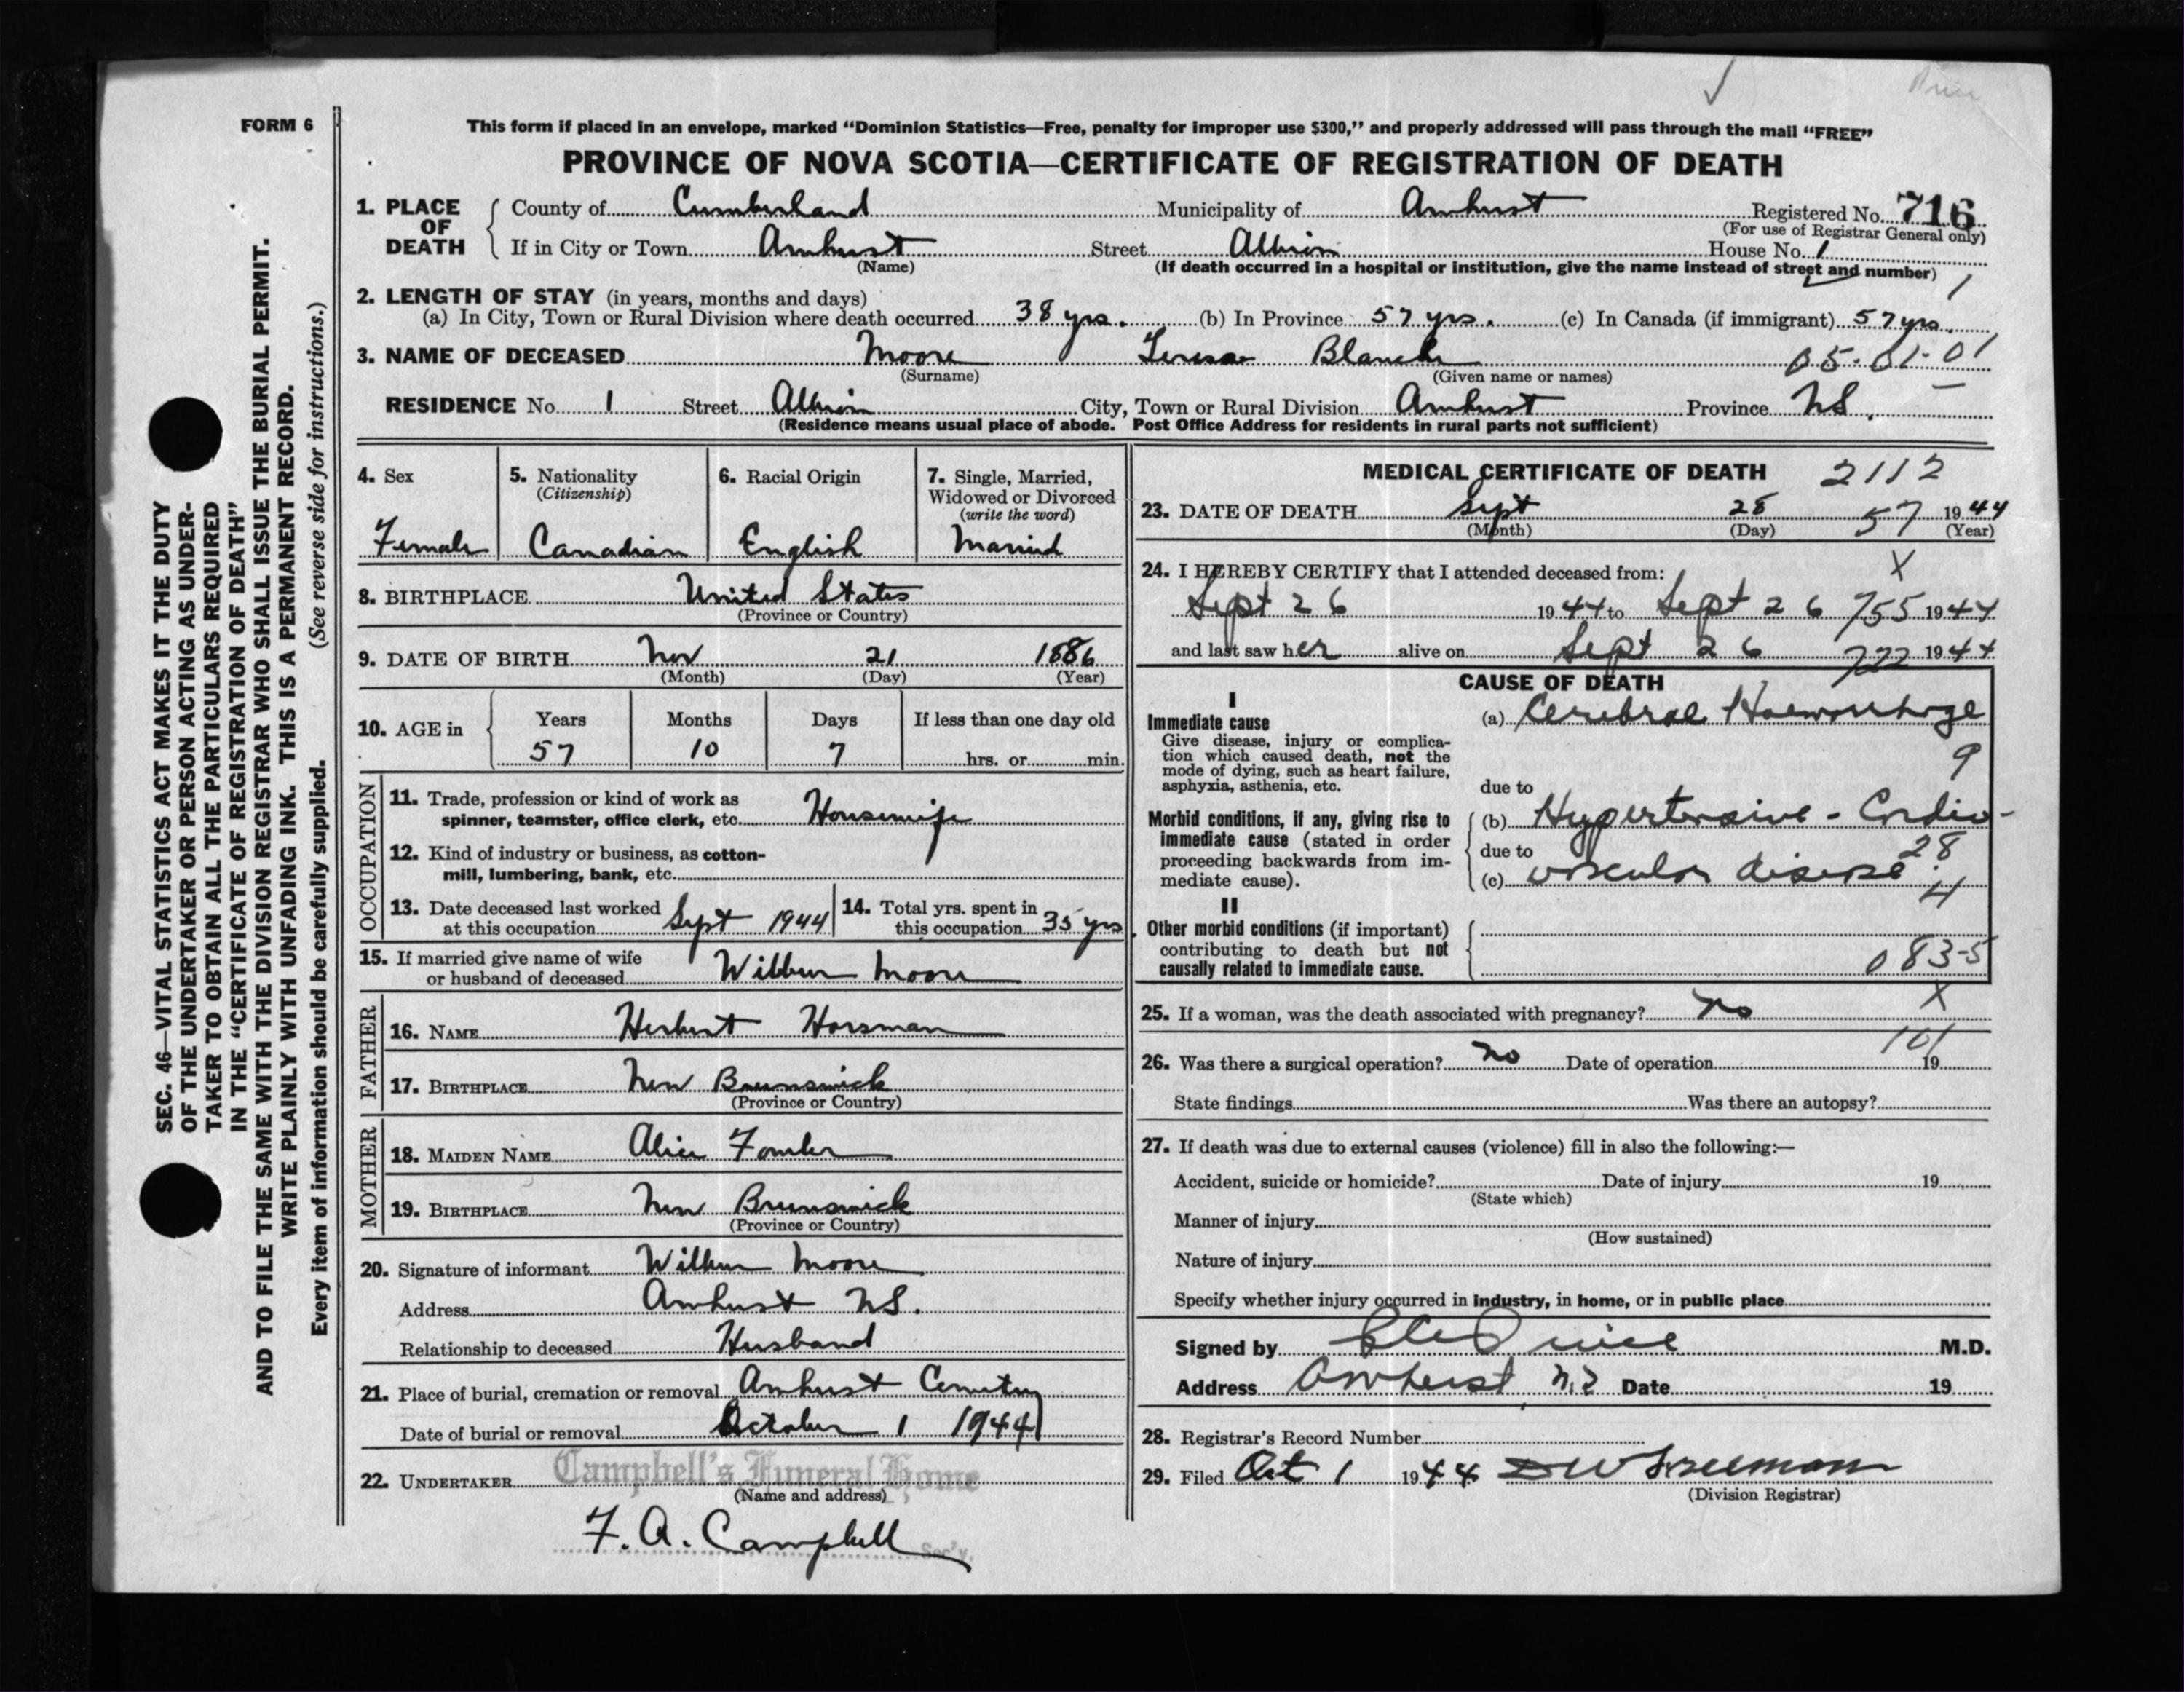 FORM 6
This form if placed in an envelope, marked “Dominion Statistics—Free, penalty for improper use $300,” and properly addressed will pass through the mail “FREE”
PROVINCE OF NOVA SCOTIA—CERTIFICATE OF REGISTRATION OF DEATH
1. PLACE OF DEATH County of Cumberland Municipality of Amherst Registered No. 716
(For use of Registrar General only)
If in City or Town Amherst Street Albion House No. 1
(Name) (If death occurred in a hospital or institution, give the name instead of street and number)
1
2. LENGTH OF STAY (in years, months and days)
(a) In City, Town or Rural Division where death occurred 38 yrs. (b) In Province 57 yrs. (c) In Canada (if immigrant) 57 yrs.
3. NAME OF DECEASED Moore Teresa Blanche 05-01-01
(Surname) (Given name or names)
RESIDENCE No. 1 Street Albion City, Town or Rural Division Amherst Province NS.
(Residence means usual place of abode. Post Office Address for residents in rural parts not sufficient)
4. Sex
Female
5. Nationality
(Citizenship)
Canadian
6. Racial Origin
English
7. Single, Married,
Widowed or Divorced
(write the word)
Married
8. BIRTHPLACE United States
(Province or Country)
9. DATE OF BIRTH Nov 21 1886
(Month) (Day) (Year)
10. AGE in Years Months Days If less than one day old
57 10 7 hrs. or min.
OCCUPATION
11. Trade, profession or kind of work as
spinner, teamster, office clerk, etc. Housewife
12. Kind of industry or business, as cotton-
mill, lumbering, bank, etc.
13. Date deceased last worked
at this occupation Sept 1944
14. Total yrs. spent in
this occupation 35 yrs.
15. If married give name of wife
or husband of deceased Wilbur Moore
FATHER
16. NAME Herbert Horsman
17. BIRTHPLACE New Brunswick
(Province or Country)
MOTHER
18. MAIDEN NAME Alice Fowler
19. BIRTHPLACE New Brunswick
(Province or Country)
20. Signature of informant Wilbur Moore
Address Amherst NS.
Relationship to deceased Husband
21. Place of burial, cremation or removal Amherst Cemetery
Date of burial or removal October 1 1944
22. UNDERTAKER Campbell's Funeral Home
(Name and address)
F. A. Campbell
Sec'y.
MEDICAL CERTIFICATE OF DEATH 2112
23. DATE OF DEATH Sept 28 57 1944
(Month) (Day) (Year)
24. I HEREBY CERTIFY that I attended deceased from: X
Sept 26 1944 to Sept 26 755 1944
and last saw her alive on Sept 26 722 1944
CAUSE OF DEATH
I
Immediate cause (a) Cerebral Haemorrhage
Give disease, injury or complica-
tion which caused death, not the
mode of dying, such as heart failure,
asphyxia, asthenia, etc.
9
due to
Morbid conditions, if any, giving rise to
immediate cause (stated in order
proceeding backwards from im-
mediate cause).
(b) Hypertensive - Cardio-
due to 28
(c) vascular disease.
4
II
Other morbid conditions (if important)
contributing to death but not
causally related to immediate cause.
083-5
25. If a woman, was the death associated with pregnancy? No X
101
26. Was there a surgical operation? no Date of operation 19
State findings Was there an autopsy?
27. If death was due to external causes (violence) fill in also the following:—
Accident, suicide or homicide? Date of injury 19
(State which)
Manner of injury
(How sustained)
Nature of injury
Specify whether injury occurred in industry, in home, or in public place
Signed by M.D.
Address Amherst, N.S Date 19
28. Registrar's Record Number
29. Filed Oct 1 1944 DW Freeman
(Division Registrar)
SEC. 46—VITAL STATISTICS ACT MAKES IT THE DUTY
OF THE UNDERTAKER OR PERSON ACTING AS UNDER-
TAKER TO OBTAIN ALL THE PARTICULARS REQUIRED
IN THE “CERTIFICATE OF REGISTRATION OF DEATH”
AND TO FILE THE SAME WITH THE DIVISION REGISTRAR WHO SHALL ISSUE THE BURIAL PERMIT.
WRITE PLAINLY WITH UNFADING INK. THIS IS A PERMANENT RECORD.
Every item of information should be carefully supplied. (See reverse side for instructions.)